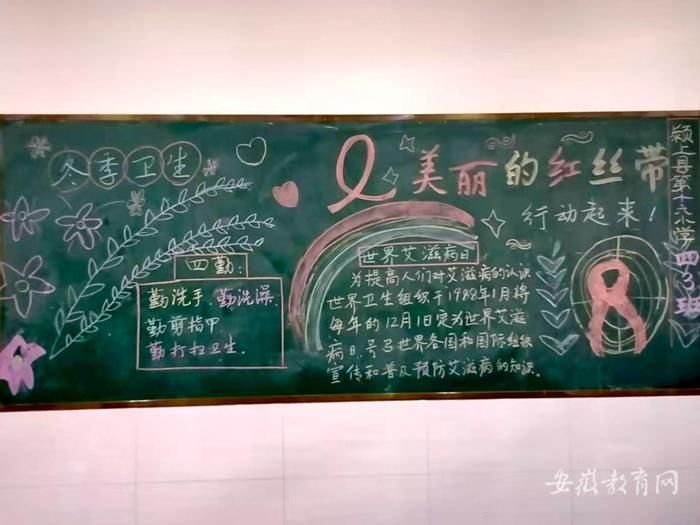 冬季卫生
四勤:
勤洗手、勤洗澡、
勤剪指甲、
勤打扫卫生。
美丽的红丝带
行动起来!
世界艾滋病日
为提高人们对艾滋病的认识
世界卫生组织于1988年1月将
每年的12月1日定为世界艾滋
病日,号召世界各国和国际组织
宣传和普及预防艾滋病的知识。
颍上县第十六小学四(3)班
安徽教育网